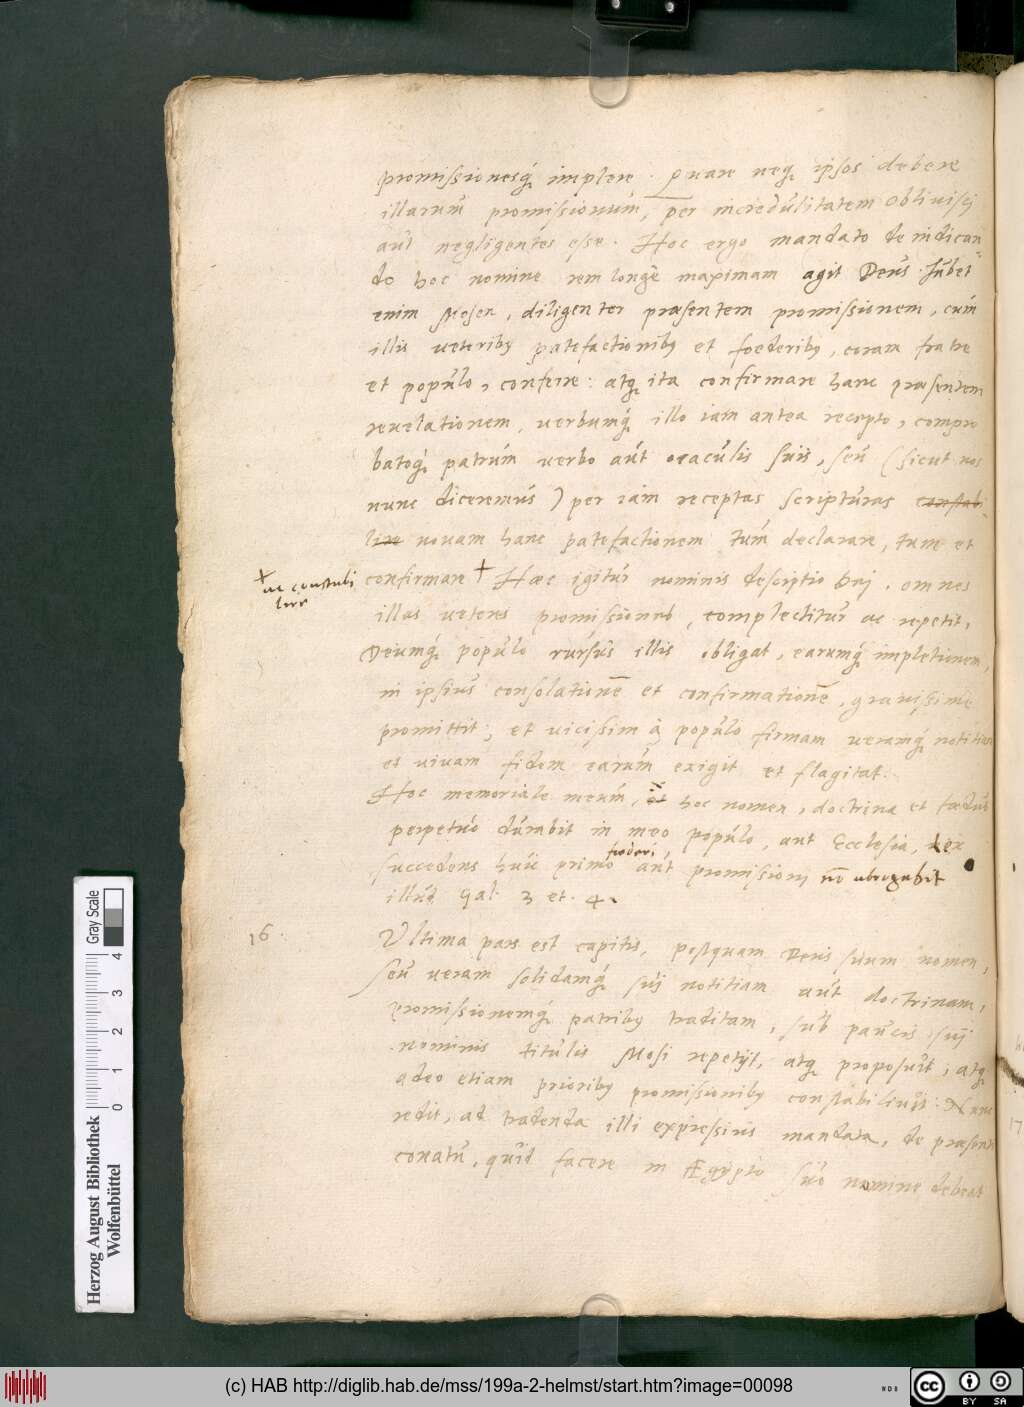 promissionesq́ꝫ implere. Quare neqꝫ ipsos debere
illarum promissionum, per incredulitatem oblivisci
aut negligentes esse. Hoc ergo mandato de indican
do hoc nomine rem longè maximam agit Deus. Iubet
enim Mosen, diligenter præsentem promissionem, cum
illis veteribꝫ patefactionibꝫ et foederibꝫ, coram fratre
et populo, conferre: atqꝫ ita confirmare hanc præsentem
revelationem, verbumq́ꝫ illo iam antea recepto, compro
batoq́ꝫ patrum verbo aut oraculis suis, seu (sicut nos
nunc diceremus) per iam receptas scripturas constabi
lire novam hanc patefactionem tum declarare, tum et
+ ac constabi
lire
confirmare + Hæc igitur nominis descriptio Dei. omnes
illas veteres promissiones, complectitur ac repetit,
Deumq́ꝫ populo rursus illis obligat, earumq́ꝫ impletionem,
in ipsius consolationē et confirmationē, gravissimè
promittit; et vicissim à populo firmam veramq́ꝫ notitiam
et vivam fidem earum exigit et flagitat.
Hoc memoriale meum, hoc nomen, doctrina et foedus
perpetuo durabit in meo populo, aut Ecclesia, lex
foederi,
succedens huic primo aut promissioni nō abrogabit
illud Gal. 3 et. 4.
16.
Ultima pars est capitis, postquam Deus suum nomen,
seu veram solidamq́ꝫ sui notitiam aut doctrinam,
promissionemq́ꝫ patribꝫ traditam, sub paucis sui
nominis titulis Mosi repetijt, atqꝫ proposuit, atqꝫ
adeo etiam prioribꝫ promissionibꝫ constabilivit. Nunc
redit, ad tradenda illi expressius mandata, de præsenti
conatu, quid facere in Ægypto suo nomine debeat
17
Gray Scale
4
3
2
1
0
Herzog August Bibliothek
Wolfenbüttel
(c) HAB http://diglib.hab.de/mss/199a-2-helmst/start.htm?image=00098
cc
BY SA